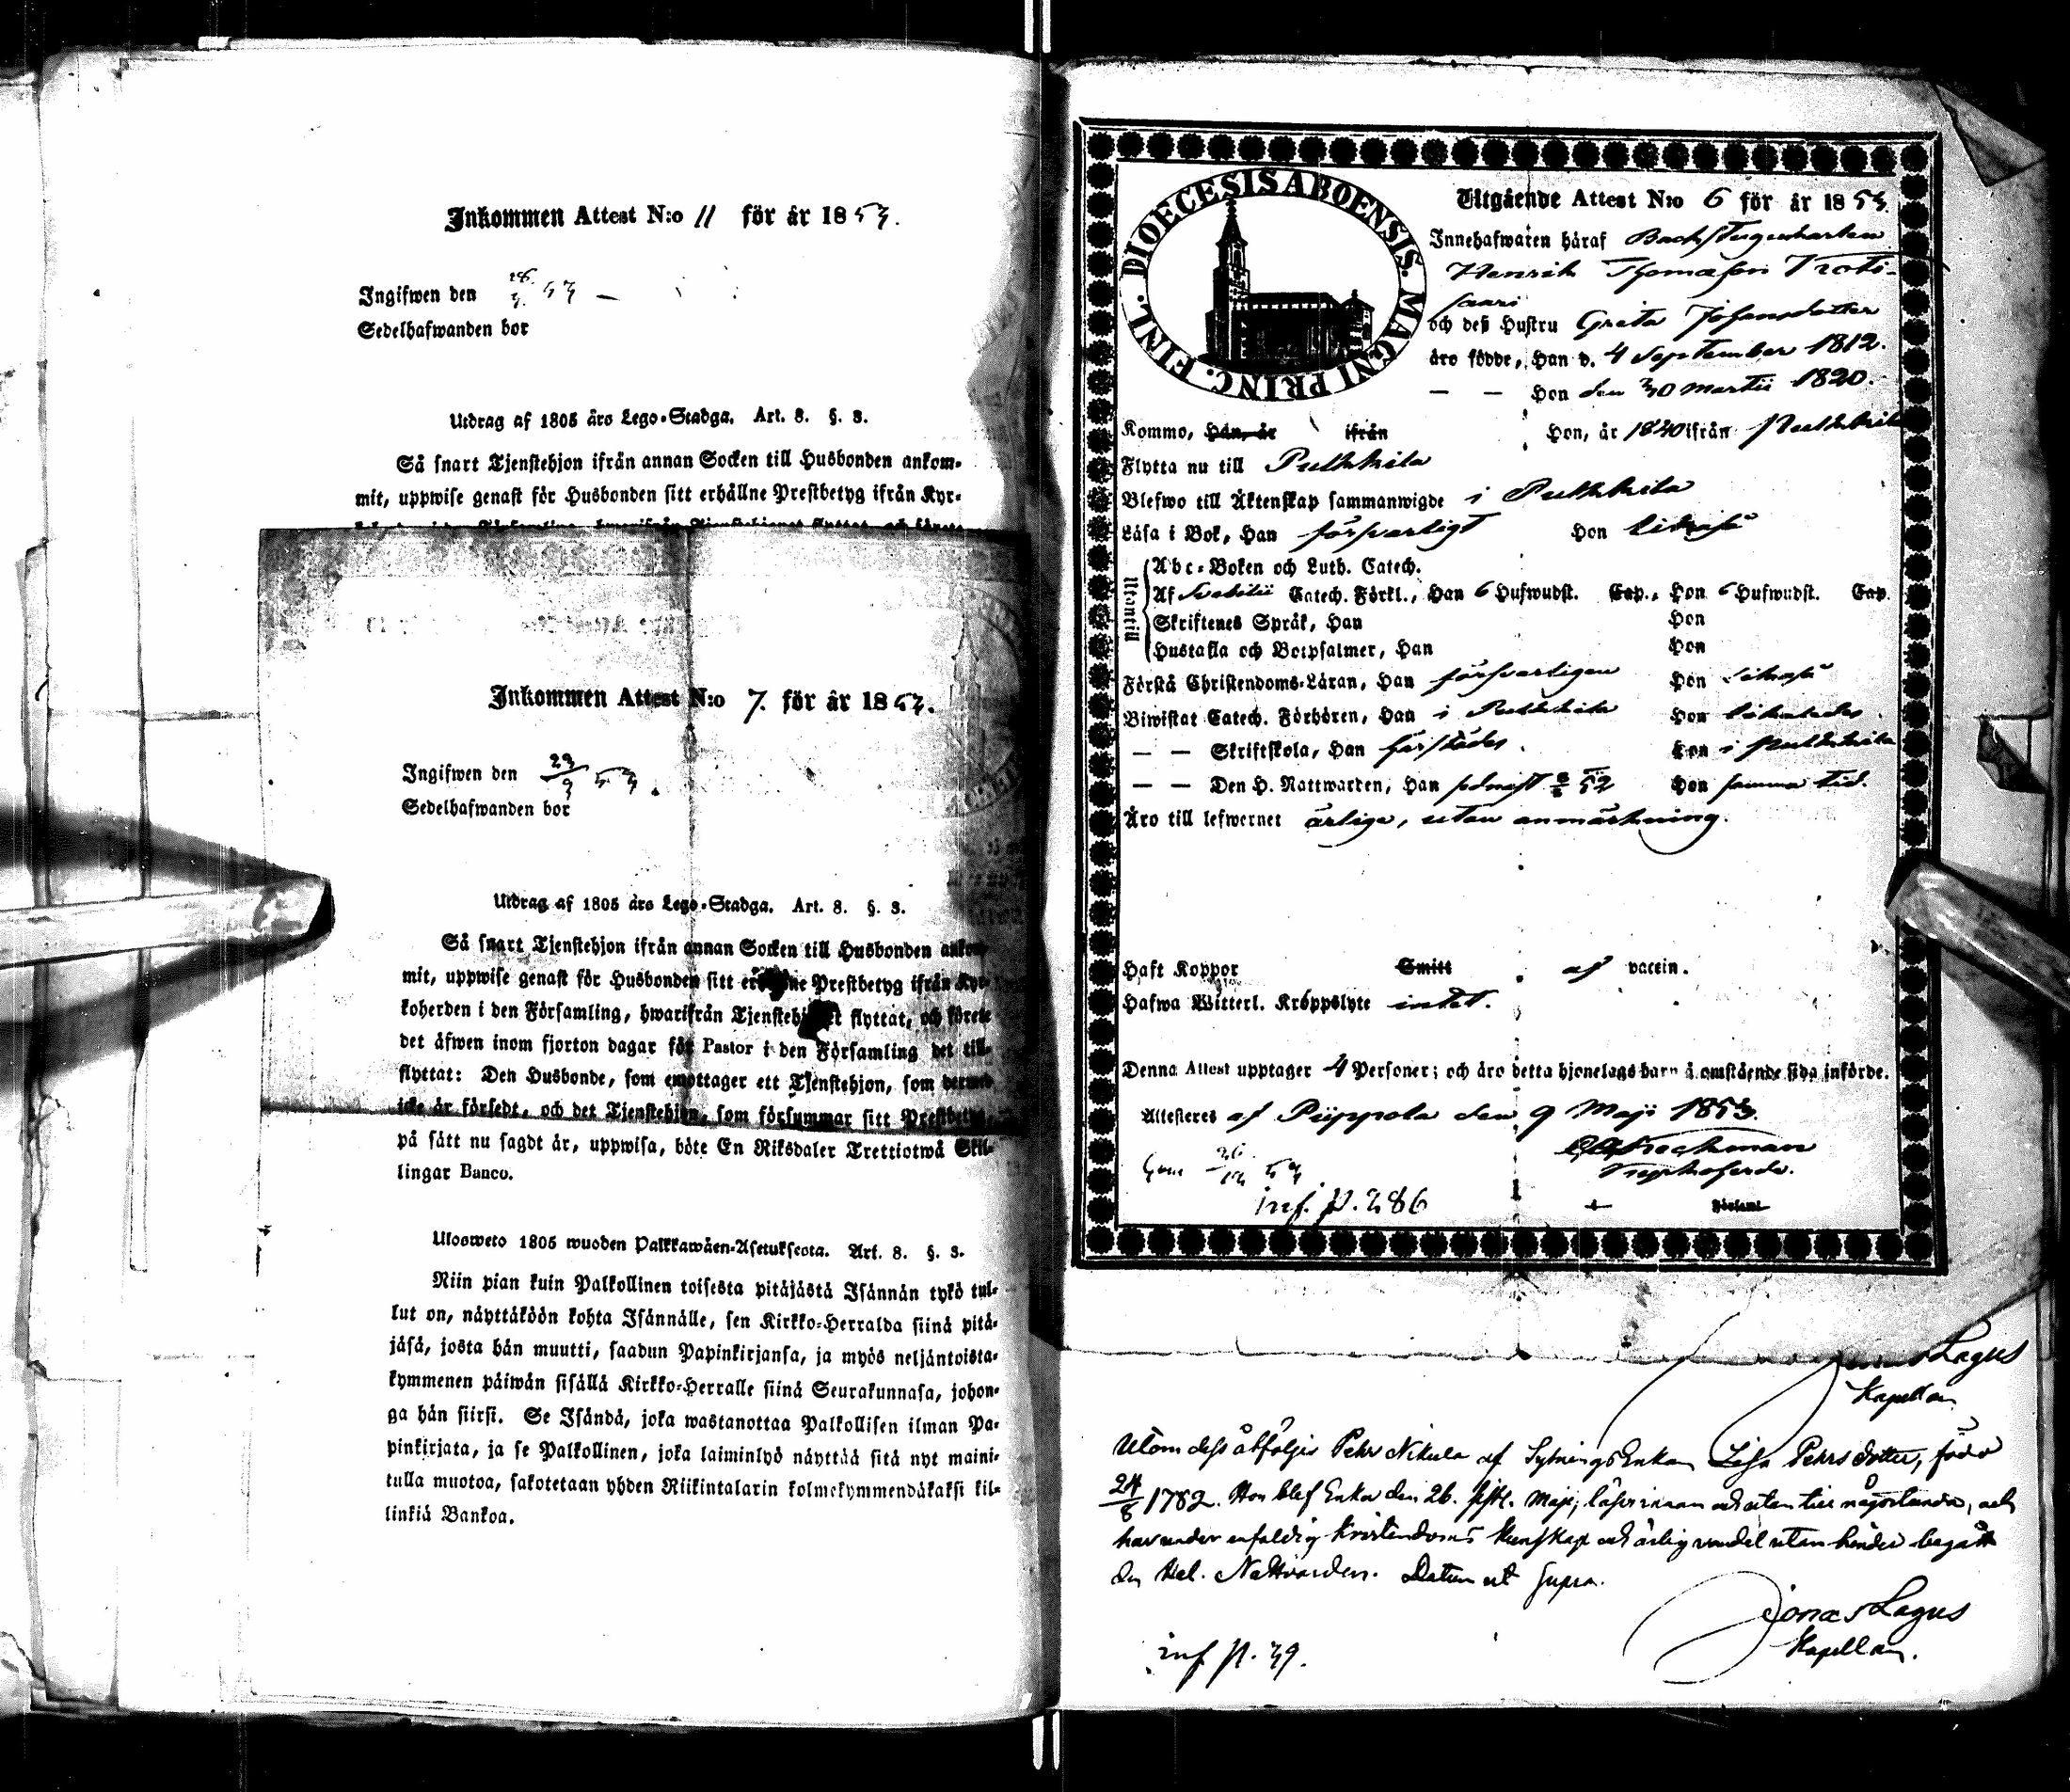 Inkommen Attest N:o 11 för år 1853.
Ingifwen den 28/3 53 —
Sedelhafwanden bor
Utdrag af 1805 års Lego-Stadga. Art. 8. §. 3.
Så snart Tjenstehjon ifrån annan Socken till Husbonden ankom-
mit, uppwise genast för Husbonden sitt erhållne Prestbetyg ifrån Kyr-
Inkommen Attest N:o 7. för år 1853.
Ingifwen den 23/9 53.
Sedelhafwanden bor
Utdrag af 1805 års Lego-Stadga. Art. 8. §. 3.
Så snart Tjenstehjon ifrån annan Socken till Husbonden ankom-
mit, uppwise genast för Husbonden sitt erhållne Prestbetyg ifrån Kyr-
koherden i den Församling, hwarifrån Tjenstehjonet flyttat, och förete
det äfwen inom fjorton dagar för Pastor i den Församling det till-
flyttat: Den Husbonde, som emottager ett Tjenstehjon, som dermed
icke är försedt, och det Tjenstehjon, som försummar sitt Prestbetyg,
på sätt nu sagdt är, uppwisa, böte En Riksdaler Trettiotwå Skil-
lingar Banco.
Ulosweto 1805 wuoden Palkkawäen-Asetuksesta. Art. 8. §. 3.
Niin pian kuin Palkollinen toisesta pitäjästä Isännän tykö tul-
lut on, näyttäköön kohta Isännälle, sen Kirkko-Herralda siinä pitä-
jäsä, josta hän muutti, saadun Papinkirjansa, ja myös neljäntoista-
kymmenen päiwän sisällä Kirkko-Herralle siinä Seurakunnasa, johon-
ga hän siirsi. Se Isändä, joka wastanottaa Palkollisen ilman Pa-
pinkirjata, ja se Palkollinen, joka laiminlyö näyttää sitä nyt maini-
tulla muotoa, sakotetaan yhden Riikintalarin kolmekymmendäkaksi kil-
linkiä Bankoa.
DIOECESIS ABOENSIS. MAGNI PRINC. FINL.
Utgående Attest N:o 6 för år 1853.
Innehafwaren häraf Backstugukarlen
Henrik Thomasson Troti-
saari
och deß Hustru Greta Johansdotter
äro födde, Han d. 4 September 1812.
— — Hon den 30 Martii 1820.
Kommo, Han, år ifrån Hon, år 1840 ifrån Pulkkila
Flytta nu till Pulkkila
Blefwo till Äktenskap sammanwigde i Pulkkila
Läsa i Bok, Han försvarligt Hon likaså
Utantill
Abc-Boken och Luth. Catech.
Af Svebilii Catech. Förkl., Han 6 Hufwudst. Cap., Hon 6 Hufwudst. Cap.
Skriftenes Språk, Han Hon
Hustafla och Botpsalmer, Han Hon
Förstå Christendoms-Läran, Han försvarligen Hon likaså
Biwistat Catech. Förhören, Han i Pulkkila Hon likaledes
— — Skriftskola, Han härstädes. Hon i Pulkkila
— — Den H. Nattwarden, Han sednast 52 Hon samma tid.
Äro till lefwernet ärlige, utan anmärkning.
Haft Koppor Smitt af vaccin.
Hafwa Witterl. Kroppslyte intet.
Denna Attest upptager 4 Personer; och äro detta hjonelags barn å omstående sida införde.
Attesteres af Piippola den 9 Maji 1853.
Inf. p. 286
Församl.
Jonas Lagus
Kapellan.
Utom dess åtföljes Pehr Nikula af SytningsEnkan Lisa Pehrs dotter, född
24/8 1782. Hon blef Enka den 26. sistl. Maji, läser innan och utan till någorlunda, och
har under enfaldig Kristendoms Kunskap och ärlig vandel utan hinder begått
den Hel. Nattvarden. Datum ut supra.
Jonas Lagus
Kapellan.
inf p. 39.